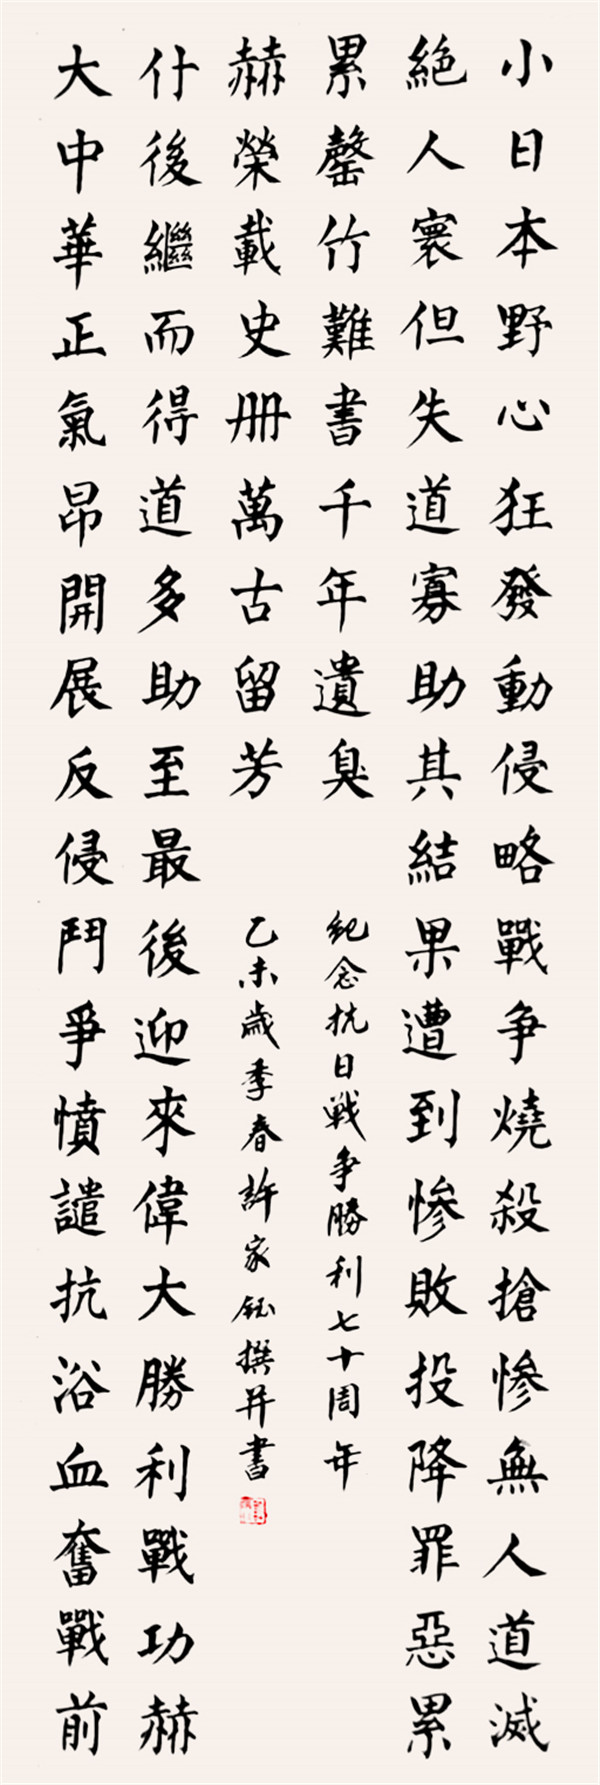 小日本野心狂發動侵略戰争燒殺搶惨無人道滅
絶人寰但失道寡助其結果遭到惨敗投降罪惡累
累罄竹難書千年遺臭
大中華正氣昂開展反侵鬥爭憤譴抗浴血奮戰前
什後繼而得道多助至最後迎來偉大勝利戰功赫
赫榮載史册萬古留芳
紀念抗日戰争勝利七十周年
乙未歲季春許家鈺撰并書